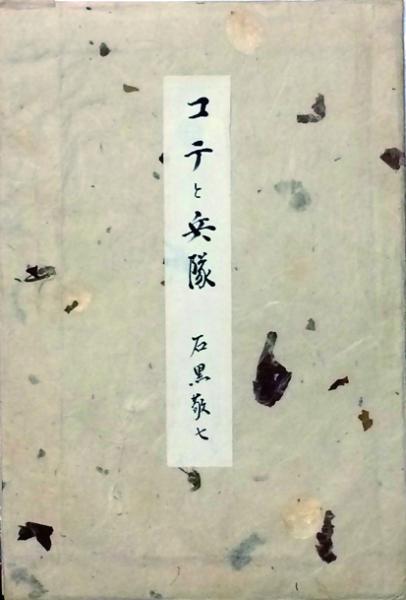 コテと兵隊
石黒敬七